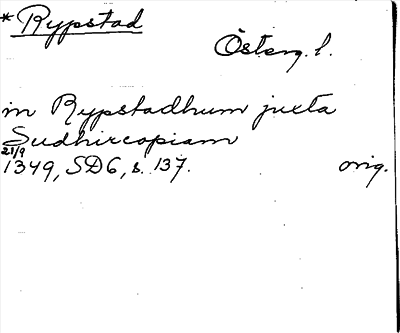 *Rypstad
Österg. l.
in Rypstadhum juxta
Sudhircopiam
21/9
1349, SD6, s. 137. orig.